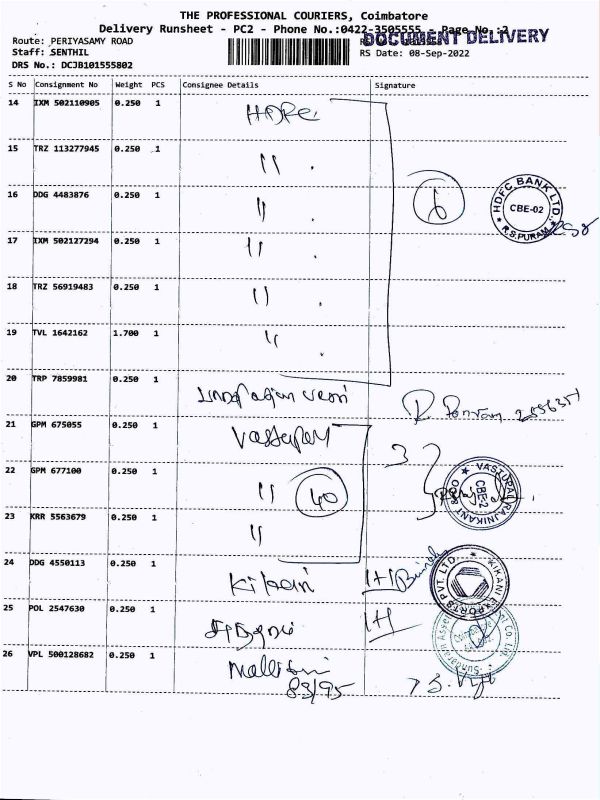 THE PROFESSIONAL COURIERS, Coimbatore
Delivery Runsheet - PC2 - Phone No.:0422-3505555 Page No.:2
DOCUMENT DELIVERY
Route: PERIYASAMY ROAD
Staff: SENTHIL
RS Date: 08-Sep-2022
DRS No.: DCJB101555802
S No Consignment No Weight PCS Consignee Details Signature
14 IXM 502110905 0.250 1 HDFC
15 TRZ 113277945 0.250 1 "
16 DDG 4483876 0.250 1 " 6
HDFC BANK LTD. CBE-02 R.S.PURAM
17 IXM 502127294 0.250 1 "
18 TRZ 56919483 0.250 1 "
19 TVL 1642162 1.700 1 "
20 TRP 7859981 0.250 1
21 GPM 675055 0.250 1 3
22 GPM 677100 0.250 1 " 40
VASTUPAL RAJNIKANT CBE-2
23 KRR 5563679 0.250 1 "
24 DDG 4550113 0.250 1 Kikani 1+1
KIKANI EXPORTS PVT. LTD.
25 POL 2547630 0.250 1 1+1
26 VPL 500128682 0.250 1
83/95